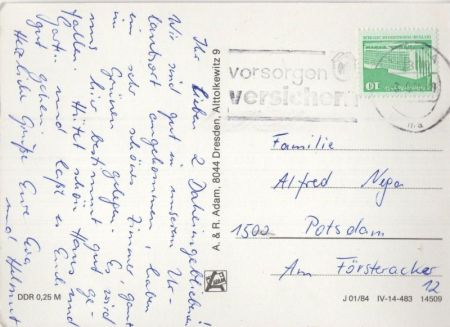 Ihr lieben 2 Daheimgebliebenen!
Wir sind gut in unserem Ur-
laubsort angekommen, haben
ein sehr schönes Zimmer, ganz
im Grünen gelegen. Es wird
uns hier bestimmt gut ge-
fallen. Hütet schön Haus und
Garten und laßt es Euch
gut gehen.
Herzliche Grüße Eure Eva
und Helmut
DDR 0,25 M
A. & R. Adam, 8044 Dresden, Alttolkewitz 9
vorsorgen
versichern
10
Familie
Alfred Nega
1500 Potsdam
Am Försteracker
12
J 01/84 IV-14-483 14509